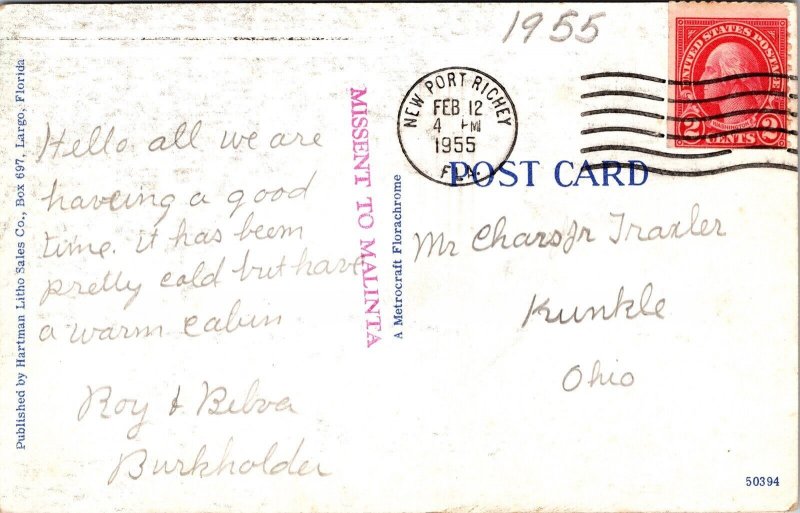 1955
UNITED STATES POSTAGE
2 CENTS 2
NEW PORT RICHEY
FEB 12
4 PM
1955
FLA.
POST CARD
Hello all we are
haveing a good
time. it has been
pretty cold but have
a warm cabin
Roy & Belva
Burkholder
MISENT TO MALINTA
Mr Chars Jr Traxler
Kunkle
Ohio
Published by Hartman Litho Sales Co., Box 697, Largo, Florida
A Metrocraft Florachrome
50394